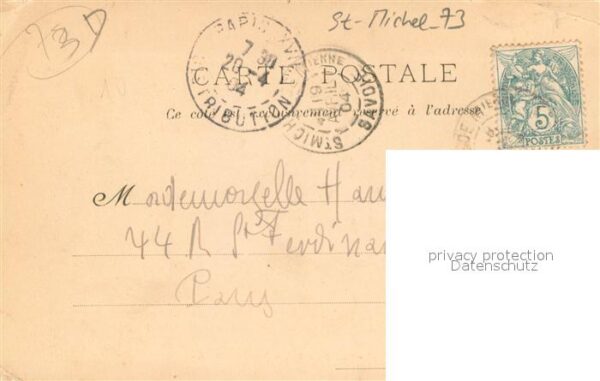 73 D
St-Michel-73
7 30
29-4
04
DISTRIBUTION
CARTE POSTALE
Ce côté est exclusivement réservé à l'adresse
ST MICH
SAVOIE
04
5
POSTES
Mademoiselle Hau
44 R St Ferdinan
Paris
privacy protection
Datenschutz